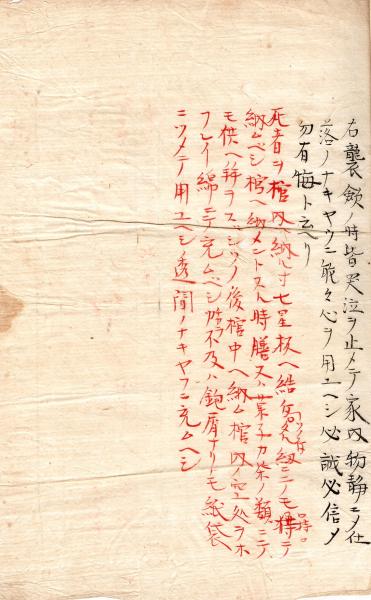 右襲歛ノ時皆哭泣ヲ止メテ家内物静ニメ仕
落ノナキヤウニ能々心ヲ用ユヘシ必誠必信メ
勿有悔ト云ヘリ
死者ヲ棺内ヘ納ルヽ寸七星板ヘ結
納ムベシ棺ヘ納メントスル時膳又ハ菓子カ茶ノ類ニテ
モ供ヘ拜ヲスベシソノ後棺中ヘ納ム棺内ノ空処ヲホ
フレイ綿ニテ充ムベシ 不及ハ鉋屑ナリトモ紙袋ヘ
ニツメテ用ユヘシ透間ノナキヤフニ充ムヘシ